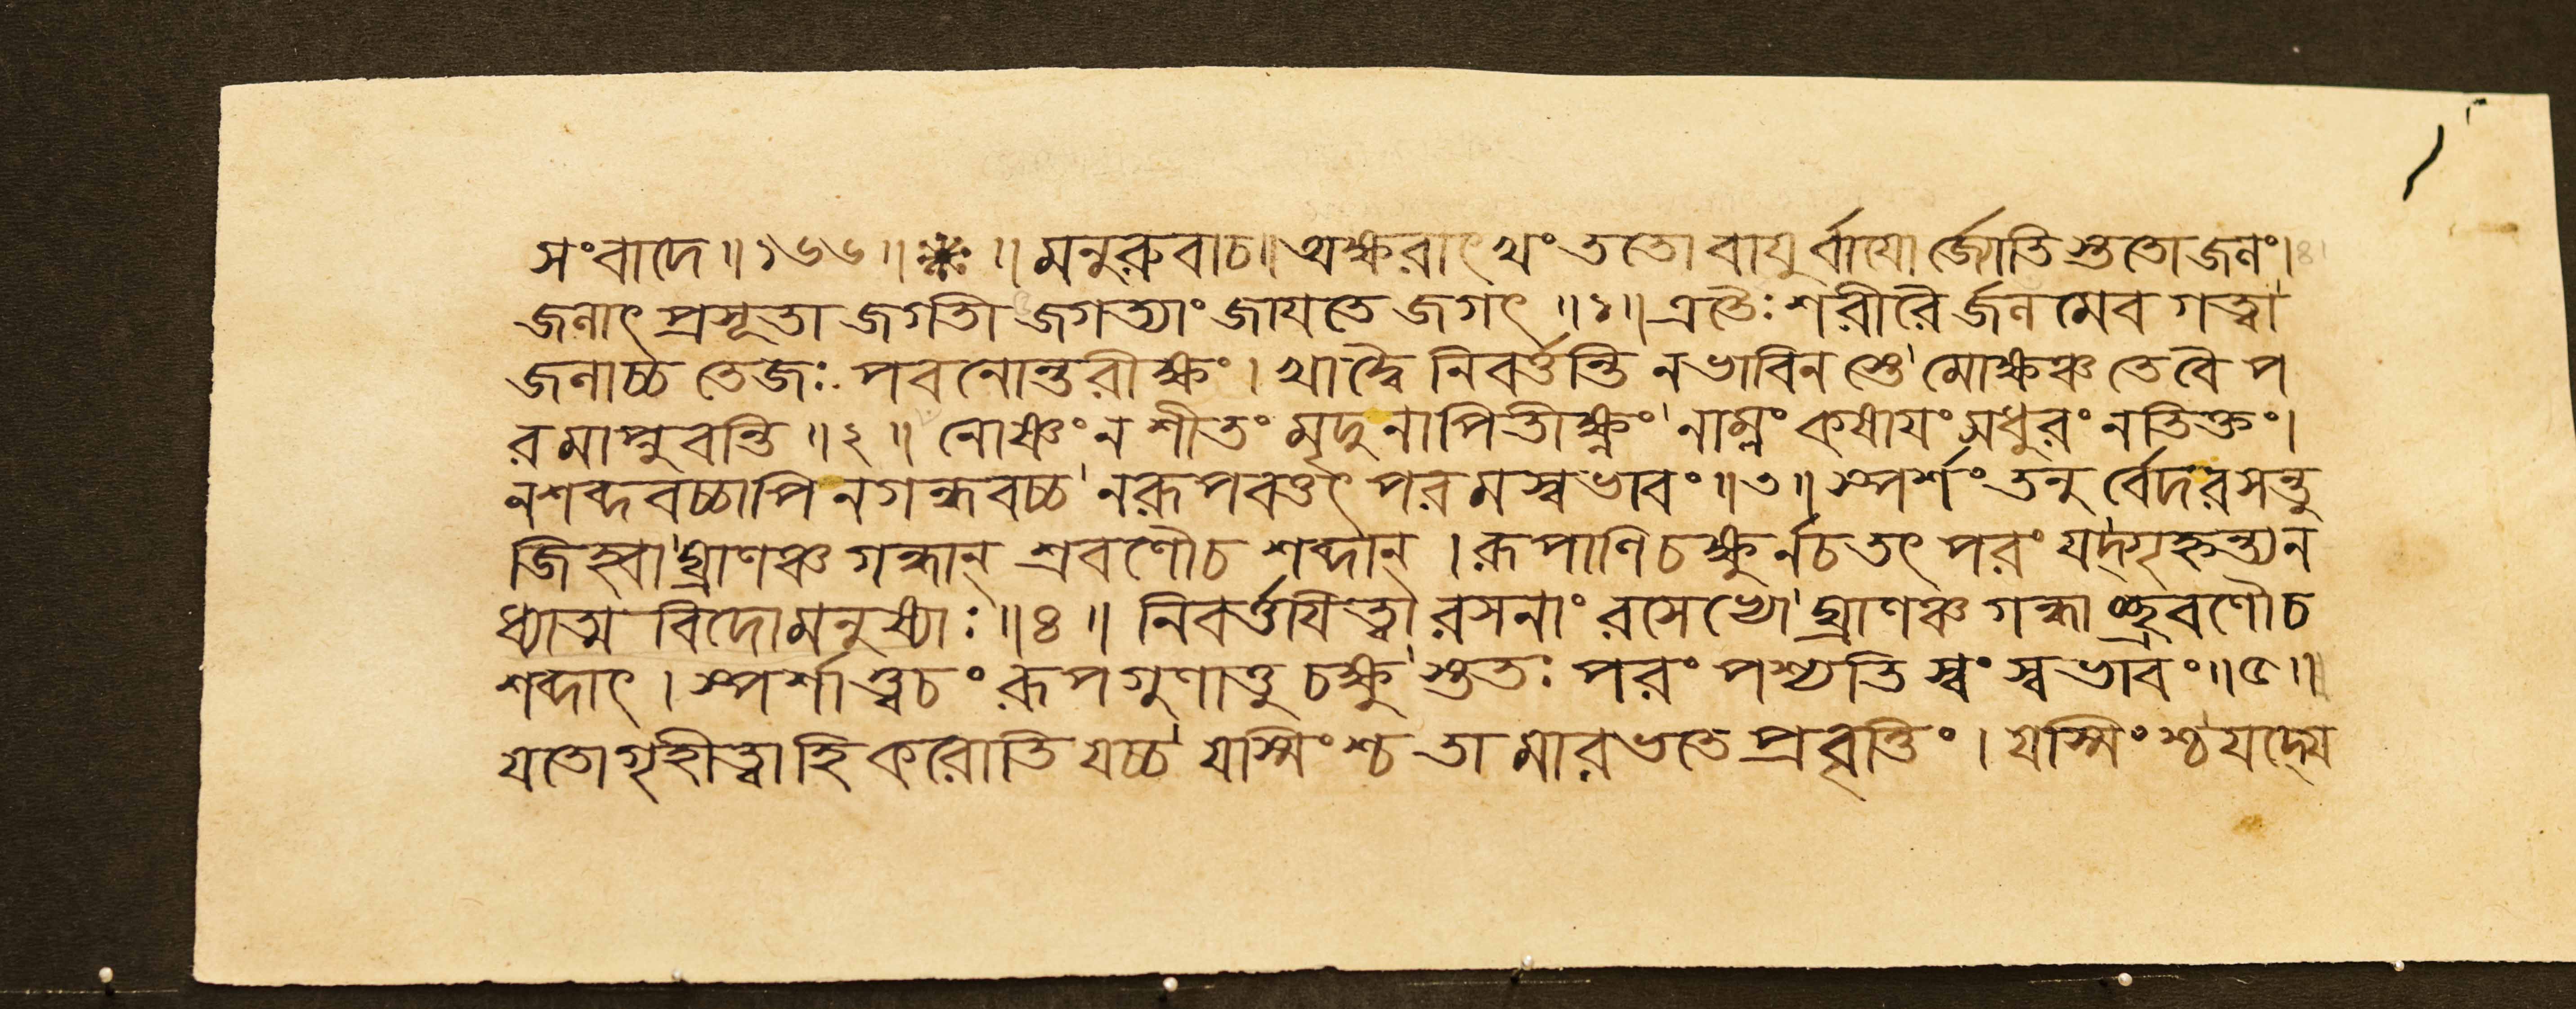 সংবাদে ॥ ১৬৬ ॥ ❋ ॥ মনুরুবাচ ॥ অক্ষরাৎ খং ততো বায়ুর্বায়োর্জ্যোতিস্ততো জলং।
জলাৎ প্রসূতা জগতী জগত্যাং জায়তে জগৎ ॥ ১ ॥ এতৈঃ শরীরৈর্জলমেব গত্বা
জলাচ্চ তেজঃ পবনোন্তরীক্ষং। খাদ্বৈ নিবর্ত্তন্তি নভাবিনস্তে মোক্ষঞ্চ তেবৈ প
রমাপ্নুবন্তি ॥ ২ ॥ নোষ্ণং ন শীতং মৃদু নাপি তীক্ষ্ণং নাম্লং কষায়ং মধুরং ন তিক্তং।
ন শব্দবচ্চাপি ন গন্ধবচ্চ ন রূপবত্তৎ পরমস্বভাবং ॥ ৩ ॥ স্পর্শং তনুর্বেদ রসন্তু
জিহ্বা ঘ্রাণঞ্চ গন্ধান্ শ্রবণৌ চ শব্দান্ । রূপাণি চক্ষুর্নচ তৎ পরং যদ্গৃহ্ণন্ত্যন
ধ্যাত্ম বিদো মনুষ্যাঃ ॥ ৪ ॥ নিবর্ত্তয়িত্বা রসনাং রসেভ্যো ঘ্রাণঞ্চ গন্ধাচ্ছ্রবণৌ চ
শব্দাৎ । স্পর্শাত্ত্বচং রূপগুণাত্তু চক্ষুস্ততঃ পরং পশ্যতি স্বং স্বভাবং ॥ ৫ ॥
যতো গৃহীত্বা হি করোতি যচ্চ যস্মিংশ্চ তামারভতে প্রবৃত্তিং । যস্মিংশ্চ যদ্যে